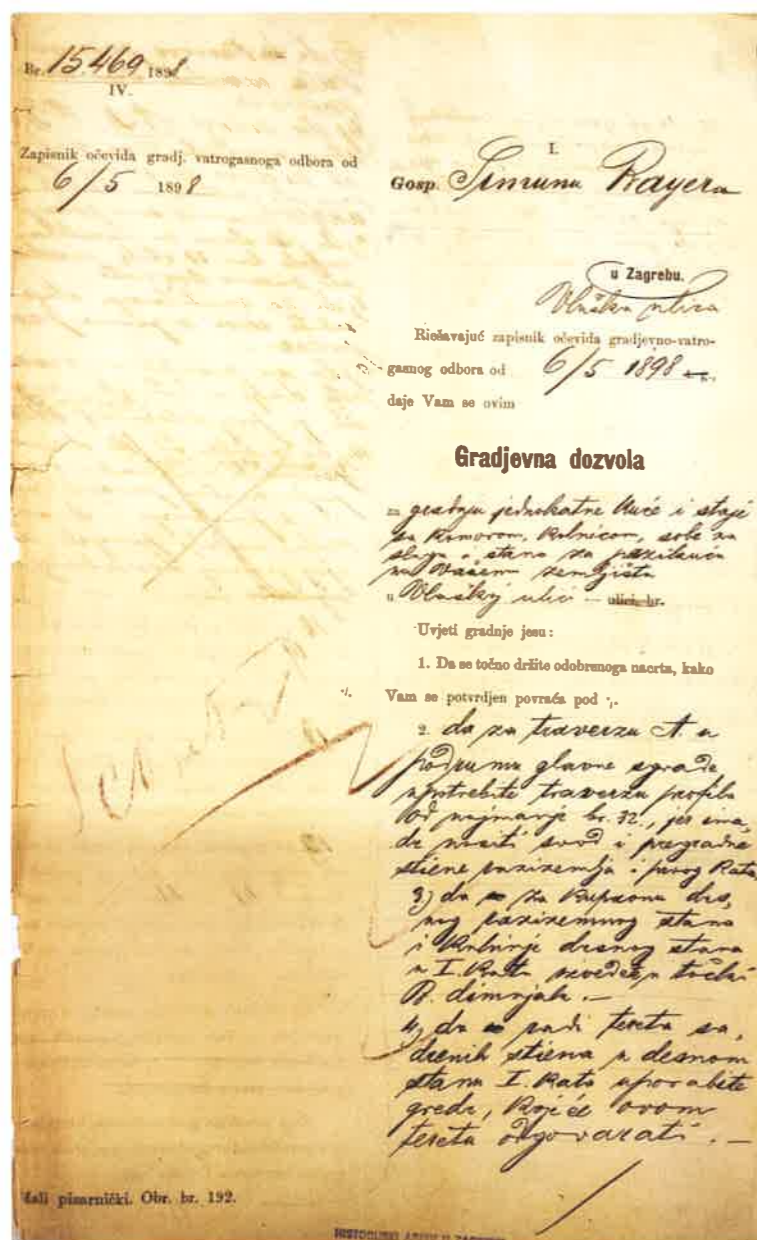 Br. 15.469 1898
IV.
Zapisnik očevida gradj. vatrogasnoga odbora od
6/5 1898
I.
Gosp. Šimunu Rayeru
u Zagrebu.
Vlaška ulica
Riešavajuć zapisnik očevida gradjevno-vatro-
gasnog odbora od 6/5 1898
daje Vam se ovim
Gradjevna dozvola
za gradnju jednokatne kuće i staje
sa komorom, kolnicom, sobe za
slugu i stana za pazikuću
na Vašem zemljištu
u Vlaškoj ulici – ulici, br.
Uvjeti gradnje jesu:
1. Da se točno držite odobrenoga nacrta, kako
·/. Vam se potvrdjen povraća pod ·/.
2. da za traverzu A. u
podrumu glavne sgrade
upotrebite traverzu profila
od najmanje br. 32., jer ima,
de nositi svod i pregradne
stiene parizemlja i prvog kata
3.) da za kupaonu des,
nog parizemnog stana
i kuhinje desnog stana
u I. katu izvedete u točki
B. dimnjak. –
4.) da radi tereta
stiena u desnom
stanu I. kata uporabite
grede, koje će ovom
teretu odgovarati. –
Mali pisarnički. Obr. br. 192.